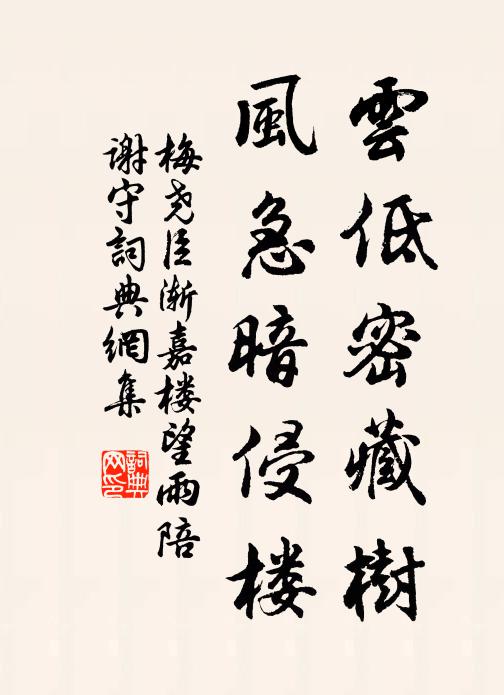 雲低密藏樹
風急暗侵楼
梅尧臣渐嘉楼望雨陪
谢守詞典網集
詞典
网印